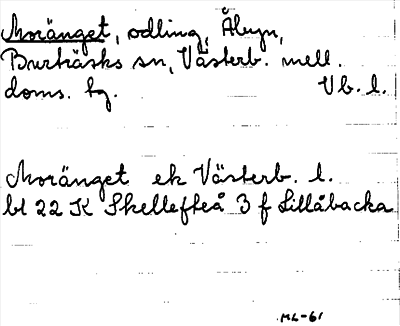 Moränget, odling, Åbyn,
Burträsks sn, Västerb. mell.
doms. hg. Vb. l.
Moränget ek Västerb. l.
bl 22 K Skellefteå 3 f Lillåbacka
ML-61